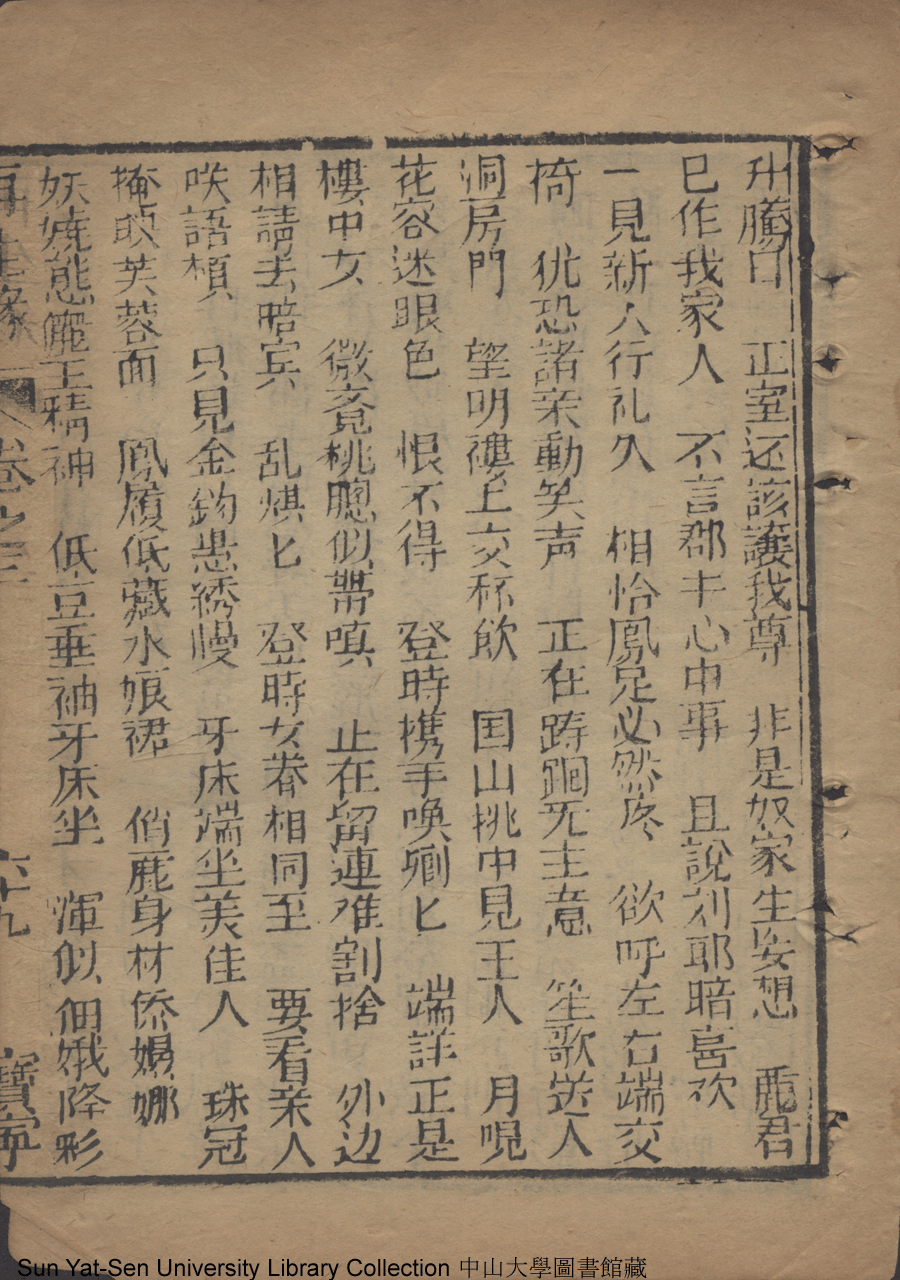 升騰日　正室还該讓我尊　非是奴家生妄想　麗君
已作我家人　不言郡主心中事　且說刘耶暗喜欢
一見新人行礼久　相怡鳳足必然疼　欲呼左右端交
椅　犹恐諸亲動笑声　正在踌蹰无主意　笙歌送人
洞房門　望明楼上交杯飲　国山挑巾見王人　月哯
花容迷眼色　恨不得　登時携手喚卿匕　端詳正是
樓中女　微竟桃腮似帶嗔　止在留連难割捨　外边
相請去暗宾　乱烘匕　登時女眷相同至　要看亲人
咲語頻　只見金鈎㨪綉幔　牙床端坐美佳人　珠冠
掩映芙蓉面　鳳履低藏水娘裙　俏麗身材㑾嬝娜
妖嬈態度王精神　低豆垂袖牙床坐　渾似個娥降彩
再生緣　卷之三　六十九　寶寧
Sun Yat-Sen University Library Collection 中山大學圖書館藏